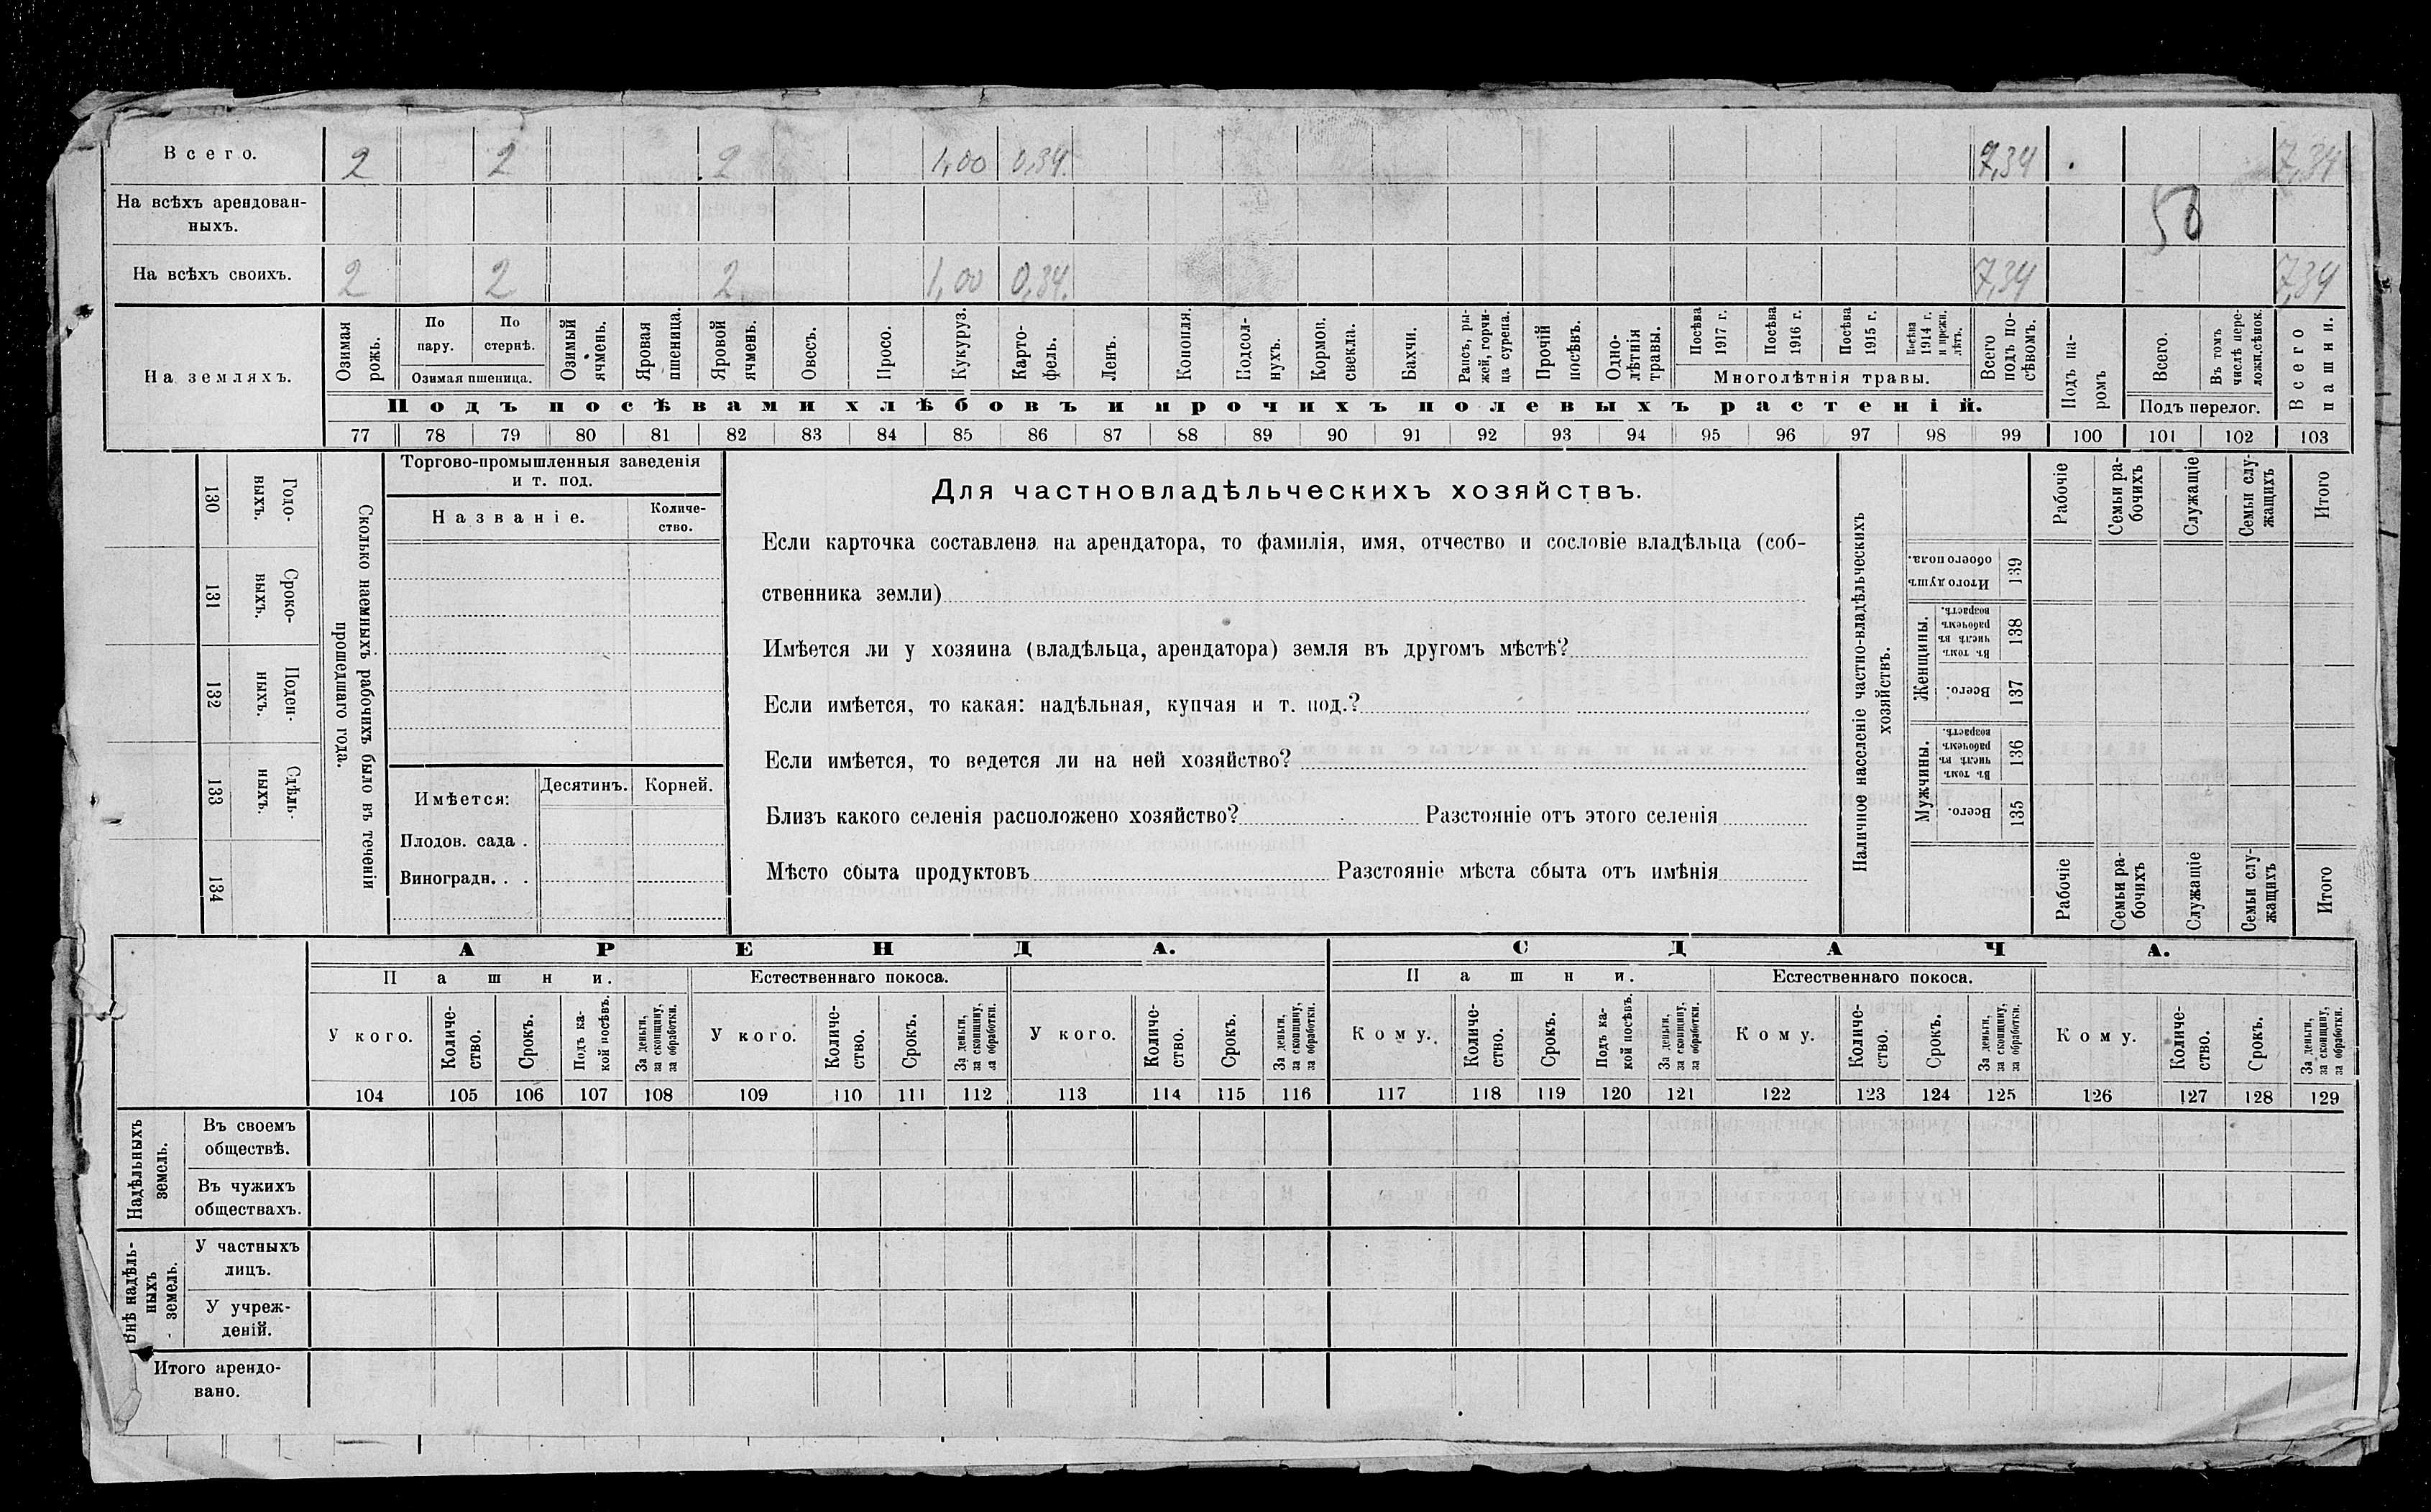 Всего. 2 2 2 1,00 0,34. 7,34 7,34
На всѣхъ арендован-
ныхъ. 50
На всѣхъ своихъ. 2 2 2 1,00 0,34. 7,34 7,34
На земляхъ.
Озимая
рожь.
По
пару.
По
стернѣ.
Озимая пшеница.
Озимый
ячмень.
Яровая
пшеница.
Яровой
ячмень.
Овесъ.
Просо.
Кукуруз.
Карто-
фель.
Ленъ.
Конопля.
Подсол-
нухъ.
Кормов.
свекла.
Бахчи.
Рапсъ, ры-
жей, горчи-
ца сурепа.
Прочій
посѣвъ.
Одно-
лѣтнія
травы.
Посѣва
1917 г.
Посѣва
1916 г.
Посѣва
1915 г.
Посѣва
1914 г.
и прежн.
лѣтъ.
Многолѣтнія травы.
Всего
подъ по-
сѣвомъ.
Подъ па-
ромъ
Всего.
Въ томъ
числѣ пере-
ложн.сѣнок.
Подъ перелог.
Всего
пашни.
Подъ посѣвами хлѣбовъ и прочихъ полевыхъ растеній.
77 78 79 80 81 82 83 84 85 86 87 88 89 90 91 92 93 94 95 96 97 98 99 100 101 102 103
130
Годо-
выхъ.
131
Сроко-
выхъ.
132
Поден-
ныхъ.
133
Сдѣль-
ныхъ.
134
Сколько наемныхъ рабочихъ было въ теченіи
прошедшаго года.
Торгово-промышленныя заведенія
и т. под.
Названіе.
Количе-
ство.
Имѣется: Десятинъ. Корней.
Плодов. сада .
Виноградн. . .
Для частновладѣльческихъ хозяйствъ.
Если карточка составлена на арендатора, то фамилія, имя, отчество и сословіе владѣльца (соб-
ственника земли)
Имѣется ли у хозяина (владѣльца, арендатора) земля въ другомъ мѣстѣ?
Если имѣется, то какая: надѣльная, купчая и т. под.?
Если имѣется, то ведется ли на ней хозяйство?
Близъ какого селенія расположено хозяйство? Разстояніе отъ этого селенія
Мѣсто сбыта продуктовъ Разстояніе мѣста сбыта отъ имѣнія
Наличное населеніе частно-владѣльческихъ
хозяйствъ.
Рабочіе
Семьи ра-
бочихъ
Служащіе
Семьи слу-
жащихъ
Итого
Итого душъ
обоего пола.
139
Женщины.
Въ томъ
числѣ въ
рабочемъ
возрастѣ.
138
Всего.
137
Мужчины.
Въ томъ
числѣ въ
рабочемъ
возрастѣ.
136
Всего.
135
Рабочіе
Семьи ра-
бочихъ
Служащіе
Семьи слу-
жащихъ
Итого
АРЕНДА. СДАЧА.
Пашни. Естественнаго покоса. Пашни. Естественнаго покоса.
У кого.
Количе-
ство.
Срокъ.
Подъ ка-
кой посѣвъ.
За деньги,
за скопщину,
за обработки.
У кого.
Количе-
ство.
Срокъ.
За деньги,
за скопщину,
за обработки.
У кого.
Количе-
ство.
Срокъ.
За деньги,
за скопщину,
за обработки.
Кому.
Количе-
ство.
Срокъ.
Подъ ка-
кой посѣвъ.
За деньги,
за скопщину,
за обработки.
Кому.
Количе-
ство.
Срокъ.
За деньги,
за скопщину,
за обработки.
Кому.
Количе-
ство.
Срокъ.
За деньги,
за скопщину,
за обработки.
104 105 106 107 108 109 110 111 112 113 114 115 116 117 118 119 120 121 122 123 124 125 126 127 128 129
Надѣльныхъ
земель.
Въ своемъ
обществѣ.
Въ чужихъ
обществахъ.
Внѣ надѣль-
ныхъ
земель.
У частныхъ
лицъ.
У учреж-
деній.
Итого арендо-
вано.